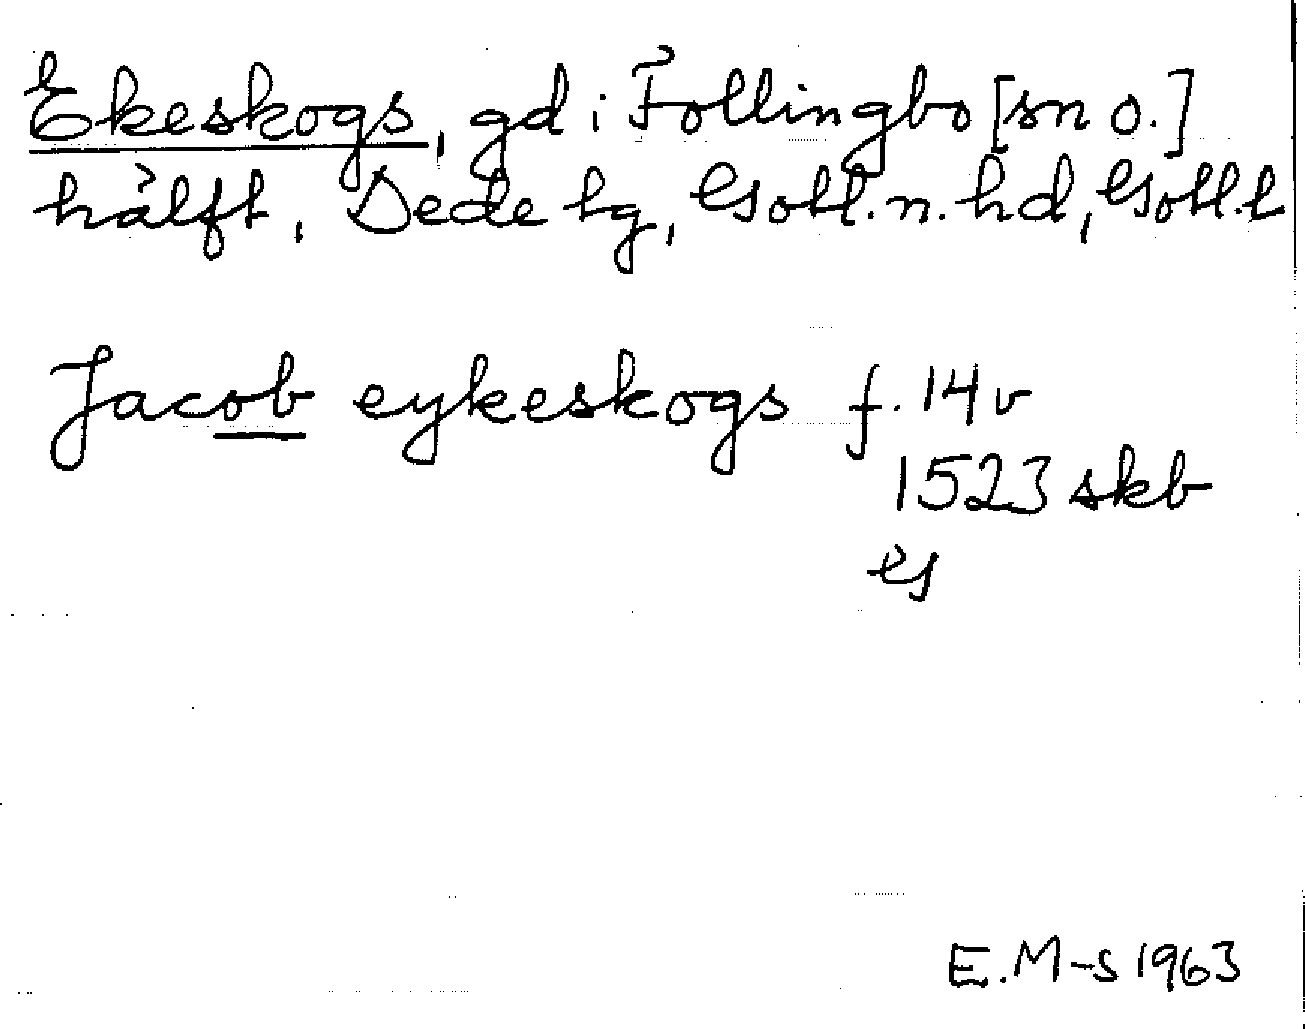 Ekeskogs, gd i Follingbo [sn o.]
hälft, Dede tg, Gotl. n. hd, Gotl. l
Jacob eykeskogs f. 14 v
1523 skb
G
E. M-s 1963